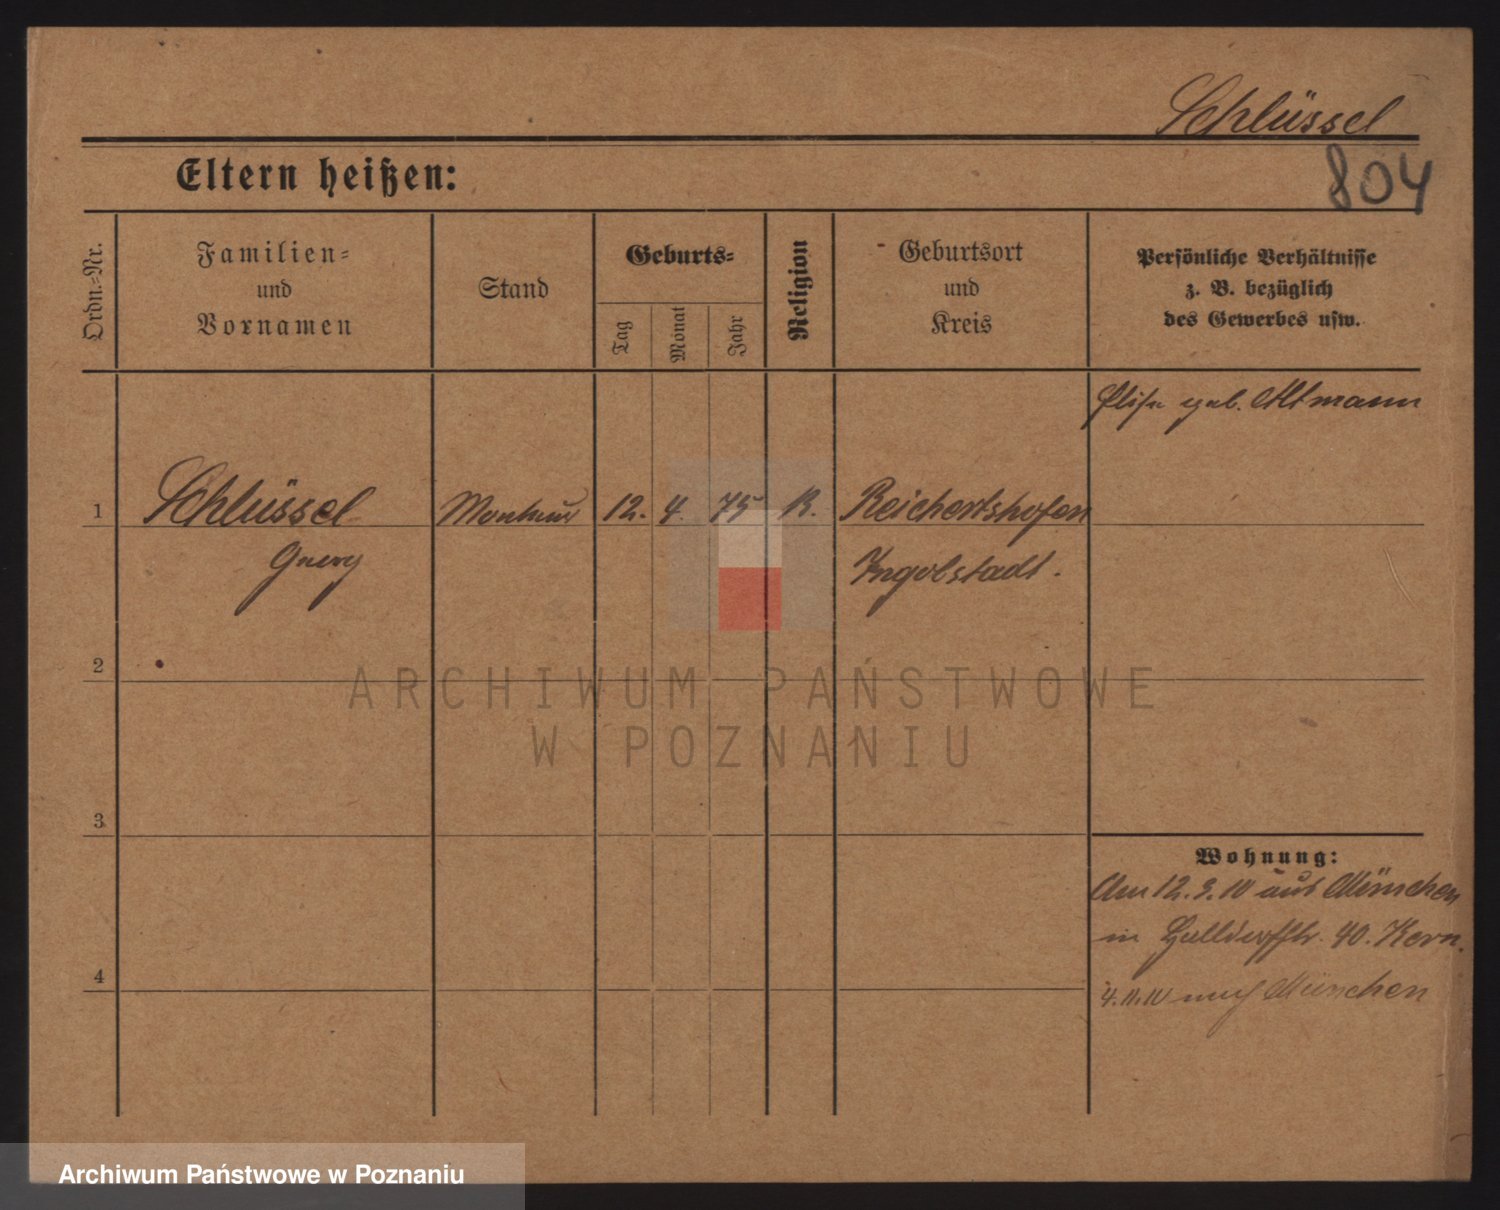 Schlüssel
804
Eltern heißen:
Ordn.-Nr.
Familien-
und
Vornamen
Stand
Geburts-
Tag
Monat
Jahr
Religion
Geburtsort
und
Kreis
Persönliche Verhältnisse
z. B. bezüglich
des Gewerbes usw.
geb. Altmann
1 Schlüssel Monteur 12. 4. 75 R. Reichertshofen
Georg Ingolstadt.
2
ARCHIWUM PAŃSTWOWE
W POZNANIU
3
Wohnung:
Am 12.9.10 aus München
in 40. Kern.
4
4.11.10 nach München
Archiwum Państwowe w Poznaniu